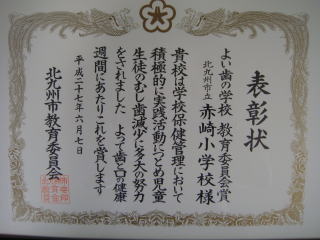 表彰状
よい歯の学校 教育委員会賞
北九州市立 赤崎小学校様
貴校は学校保健管理において
積極的に実践活動につとめ児童
生徒のむし歯減少に多大の努力
をされました よって歯と口の健康
週間にあたりこれを賞します
平成二十七年六月七日
北九州市教育委員会